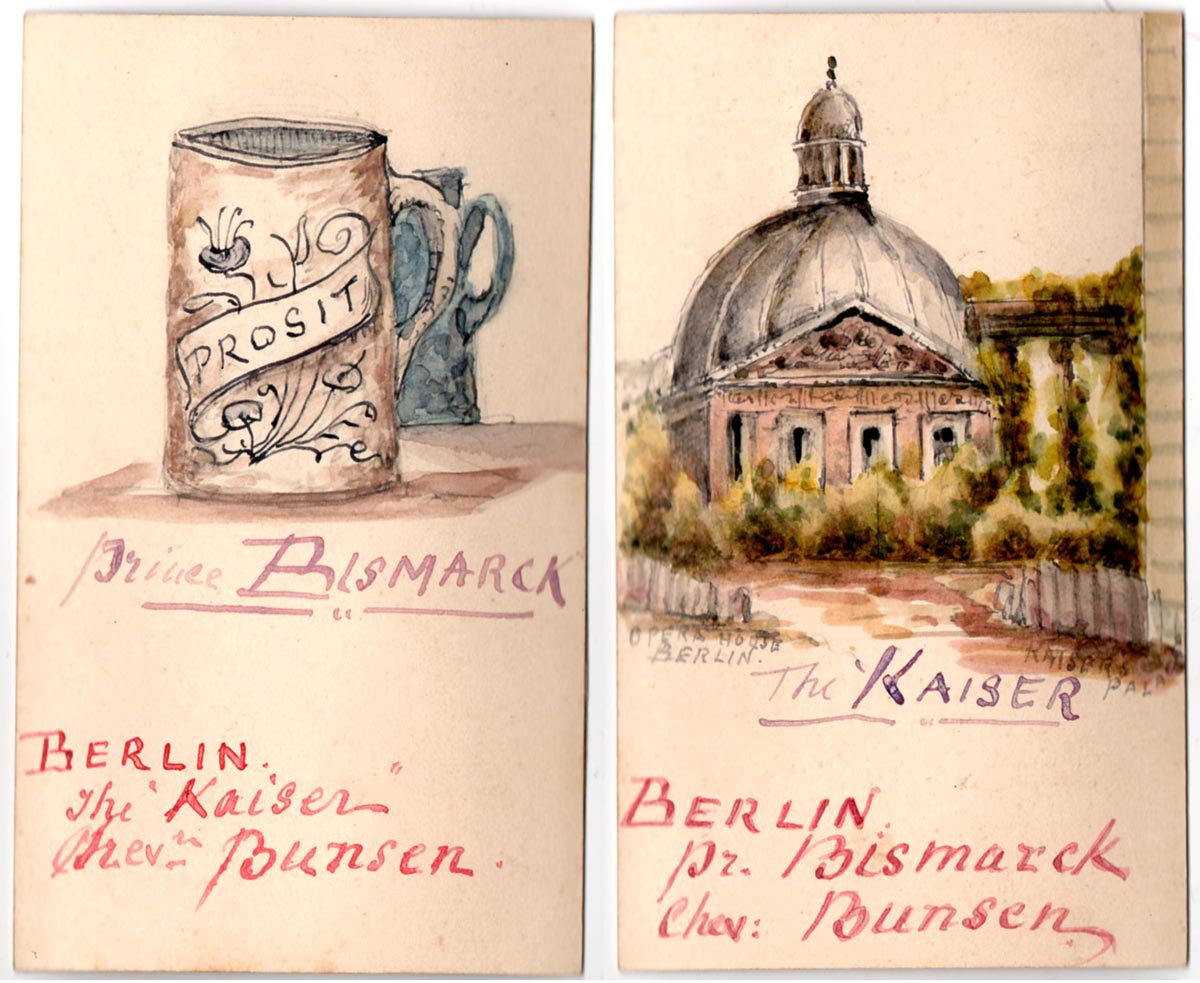 PROSIT
Prince BISMARCK
BERLIN.
The "Kaiser"
Chevr. Bunsen.
OPERA HOUSE
BERLIN.
KAISERS
PALA
The "KAISER
BERLIN.
Pr. Bismarck
Chev: Bunsen